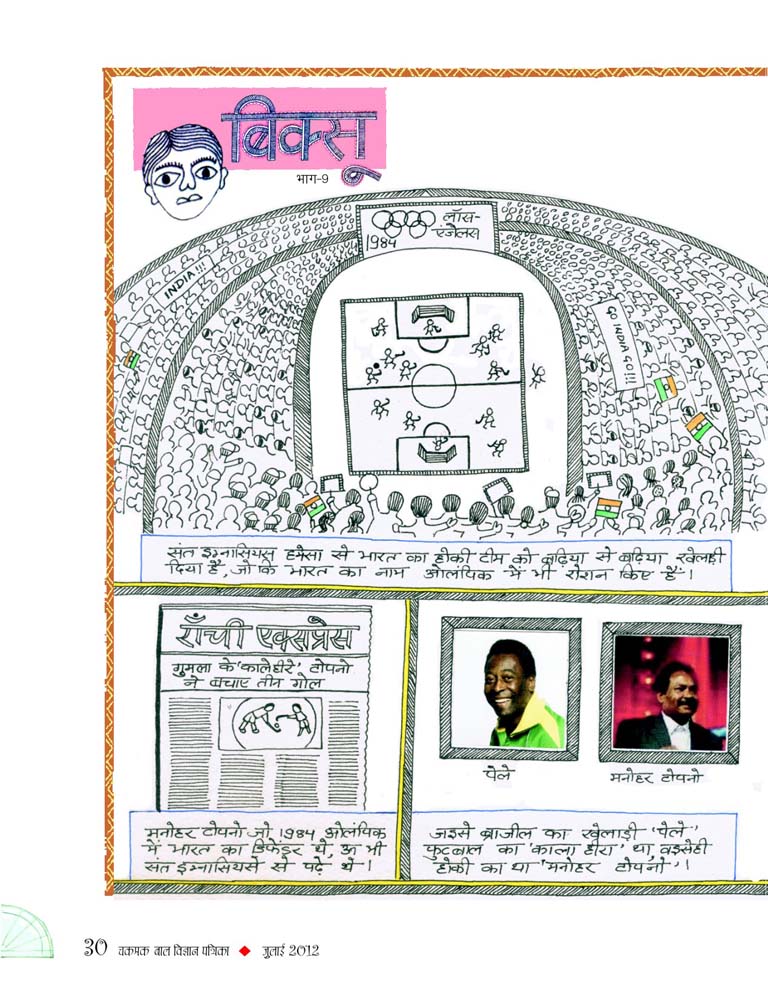 बिक्सू
भाग-9
लॉस-
एंजेलस
1984
INDIA!!!
GO INDIA GO!!!
संत इग्नासियस हमेसा से भारत का हॉकी टीम को बढ़िया से बढ़िया खेलाड़ी
दिया है, जो कि भारत का नाम ओलंपिक में भी रोशन किए हैं।
राँची एक्सप्रेस
गुमला के 'काले हीरे' टोपनो
ने बचाए तीन गोल
मनोहर टोपनो जो 1984 ओलंपिक
में भारत का डिफेंडर थे, ऊ भी
संत इग्नासियसे से पढ़े थे।
पेले
मनोहर टोपनो
जइसे ब्राजील का खेलाड़ी 'पेले'
फुटबाल का 'काला हीरा' था, वइसेही
हॉकी का था 'मनोहर टोपनो'।
30 चकमक बाल विज्ञान पत्रिका ◆ जुलाई 2012